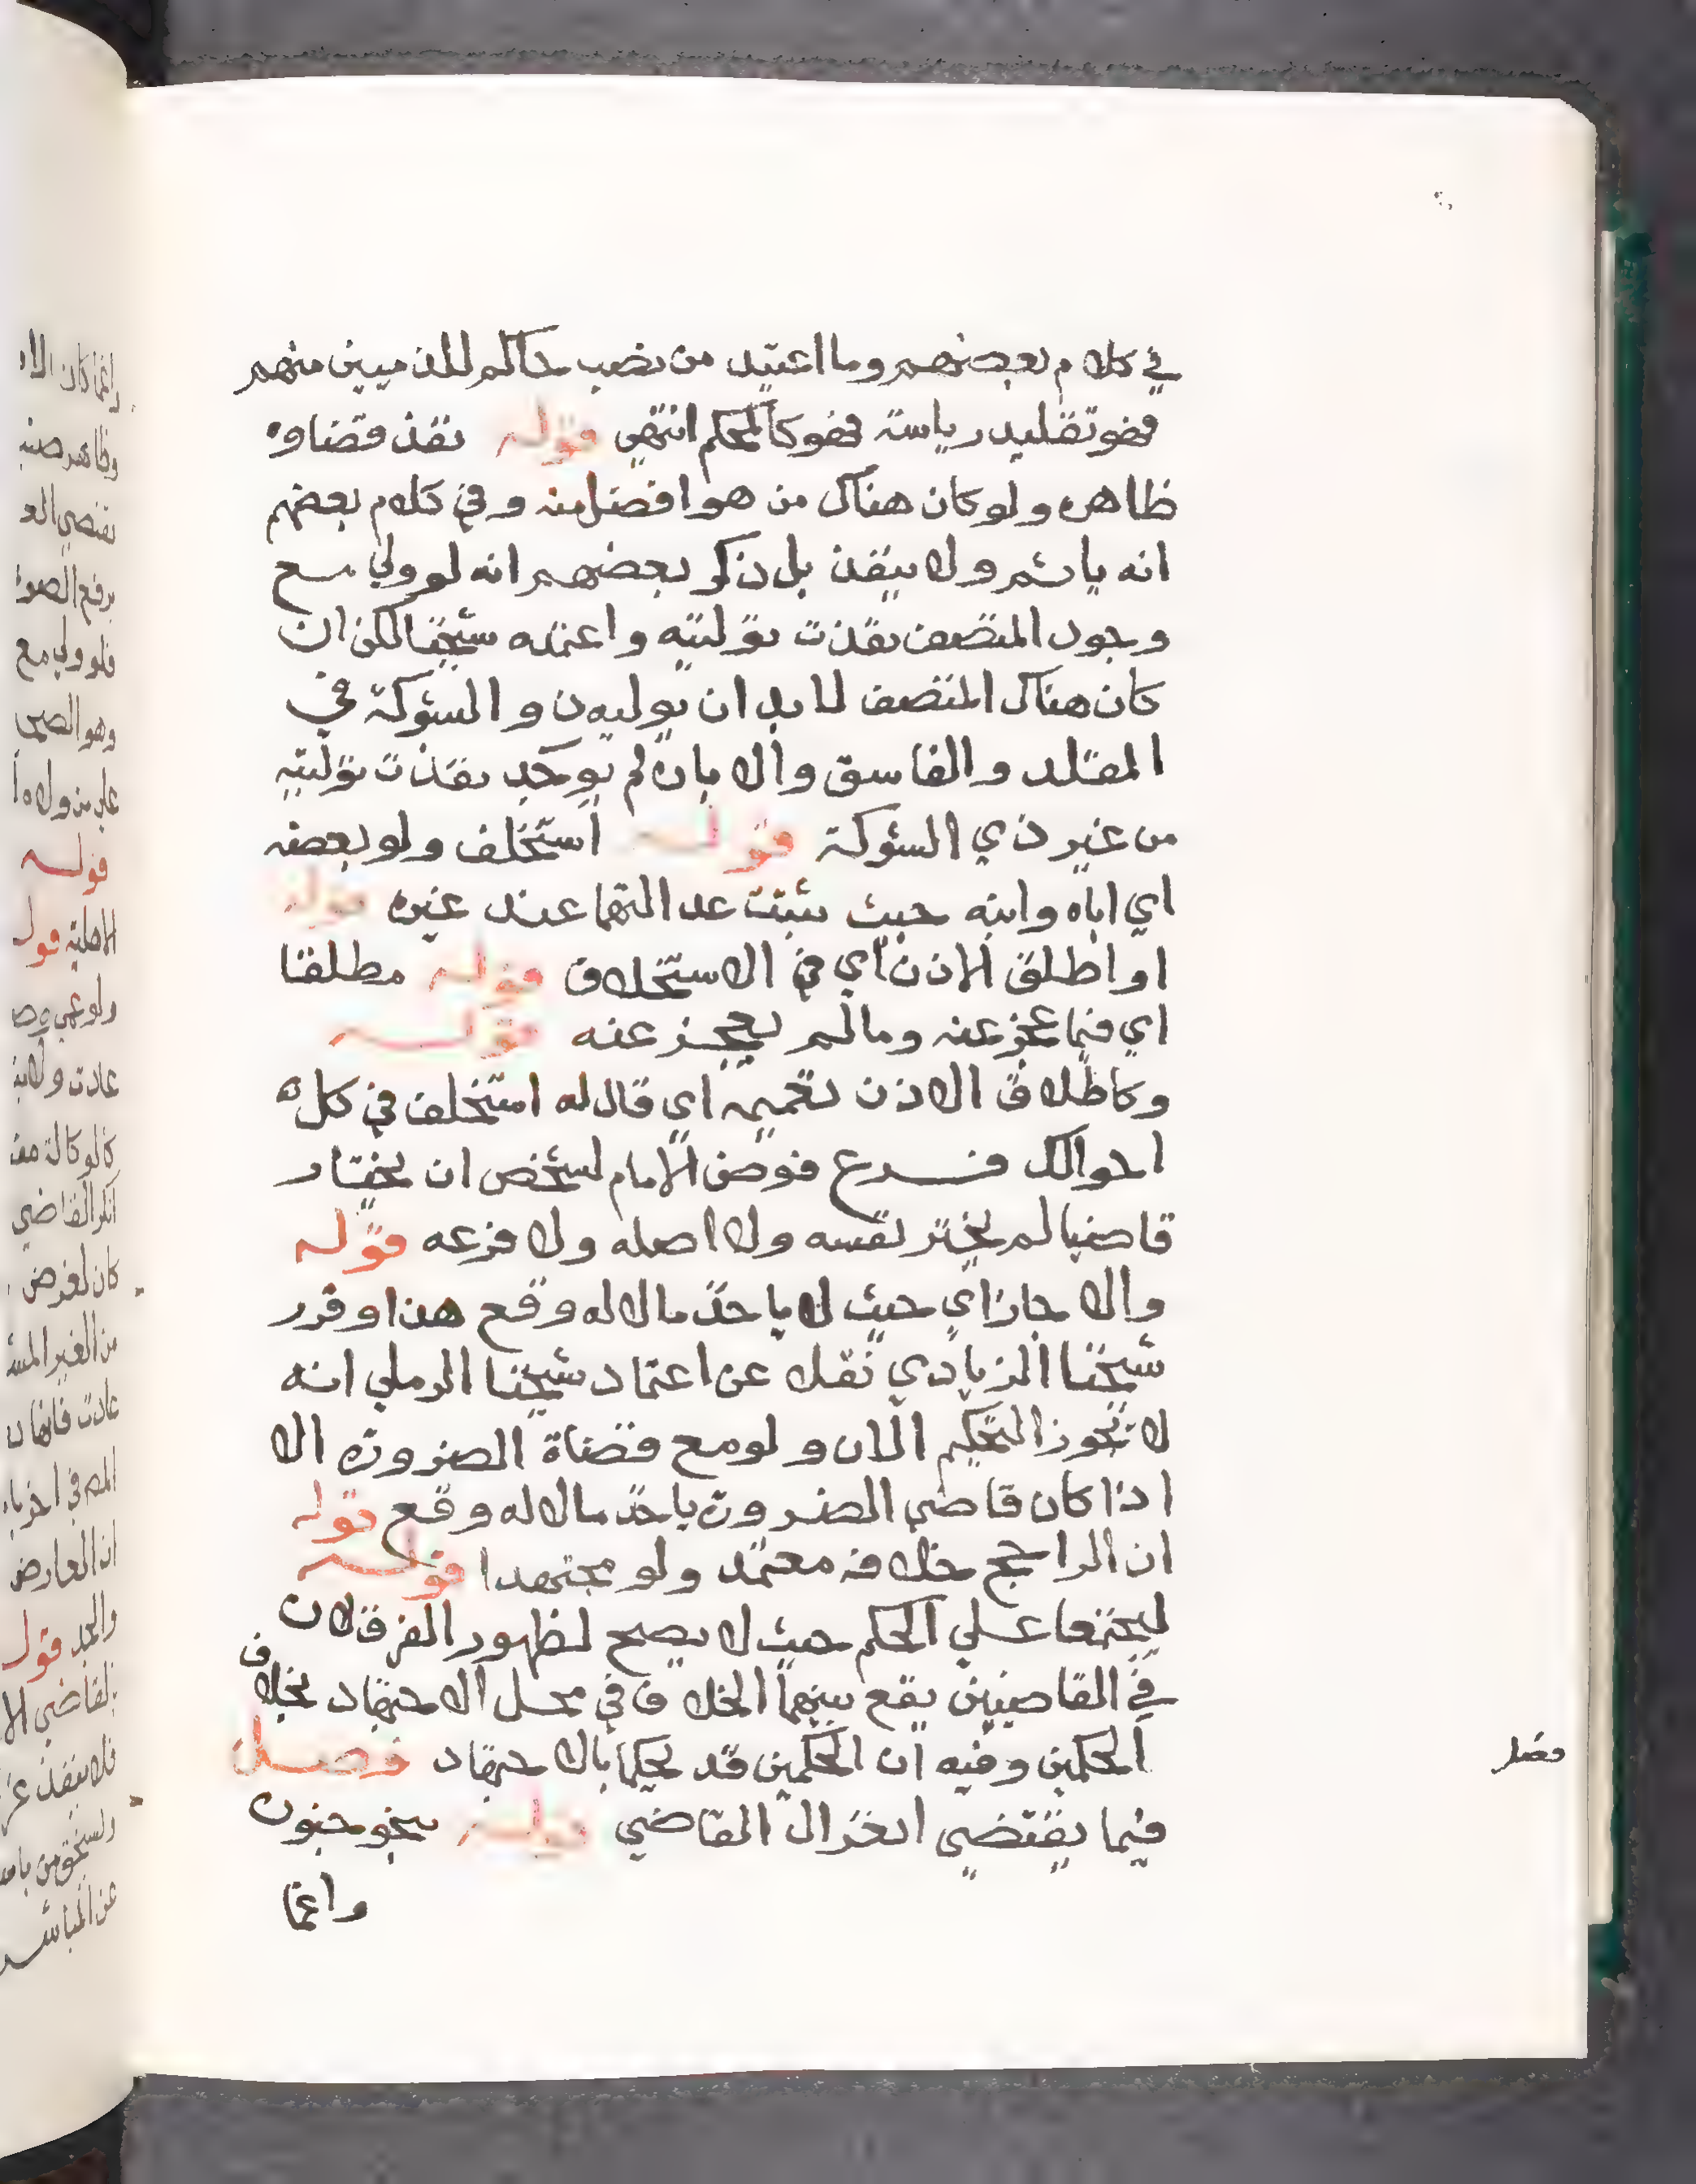 في كلام بعضهم وما اعتيد من نصب حاكم للذميين منهم
فهو تقليد رياسة فهو كالمحكم انتهى قوله نفذ قضاوه
ظاهره ولو كان هناك من هو افضل منه وفي كلام بعضهم
انه ياثم ولا ينفذ بل ذكر بعضهم انه لو ولي مع
وجود المتصف نفذت توليته واعتمده شيخنا لكن ان
كان هناك المتصف لا بد ان يوليه ذو الشوكة في
المقلد والفاسق والا بان لم يوجد نفذت توليته
من غير ذي الشوكة قوله استخلف ولو بعضه
اي اباه وابنه حيث ثبتت عدالتهما عند غيره قوله
او اطلق الاذن اي في الاستخلاف قوله مطلقا
اي فيما عجز عنه وما لم يعجز عنه قوله
وكاطلاق الاذن تعميمه اي قال له استخلف في كل
احوالك فرع فوض الامام لشخص ان يختار
قاضيا لم يختر نفسه ولا اصله ولا فرعه قوله
والا جاز اي حيث لا ياخذ مالا له وقع هذا وقرر
شيخنا الزيادي نقلا عن اعتماد شيخنا الرملي انه
لا يجوز التحكيم الان ولو مع قضاة الضرورة الا
اذا كان قاضي الضرورة ياخذ مالا له وقع قوله
ان الراجح خلافه معتمد ولو مجتهدا قوله
ليجتمعا على الحكم حيث لا يصح لظهور الفرق لان
في القاضيين يقع بينهما الخلاف في محل الاجتهاد بخلاف
الحكمين وفيه ان الحكمين قد يحكما بالاجتهاد فصل
فيما يقتضي انعزال القاضي قوله بنحو جنون
وانما
فصل
وانما كان الا
وظاهر صنيـ
يقتضي الـ
فلو ولي مع
قوله
الاهلية قول
ولو عمي
عادت ولاية
انكر القاضي
كان لغرض
من الغير
ان العارض
والجد قول
القاضي الا
فلا ينفذ